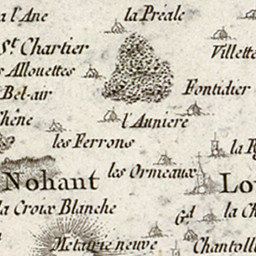 a l'Ane
la Préale
St. Chartier
Villette
s Allouettes
Bel-air
Fontidier
Chêne
l'Auniere
les Ferrons
la R
les Ormeaux
Nohant
Lo
la Croix Blanche
Gd
la Ch
Metairie neuve
Chantoll